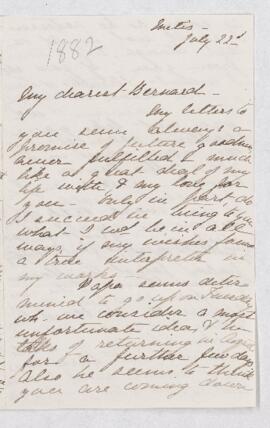 Metis -
July 22d
1882
My dearest Bernard -
My letters to
you seem always a
promise of future goodness
never fulfilled & much
like a great deal of my
life with & my love for
you - Only in part do
I succeed in being to you
what I wd be in all
ways, if my wishes found
a true interpreter in
my works -
Papa seems deter
mined to go up on Sunday
wh. we consider a most
unfortunate idea, & he
talks of returning in
for a further few days
Also he seems to think
you are coming down